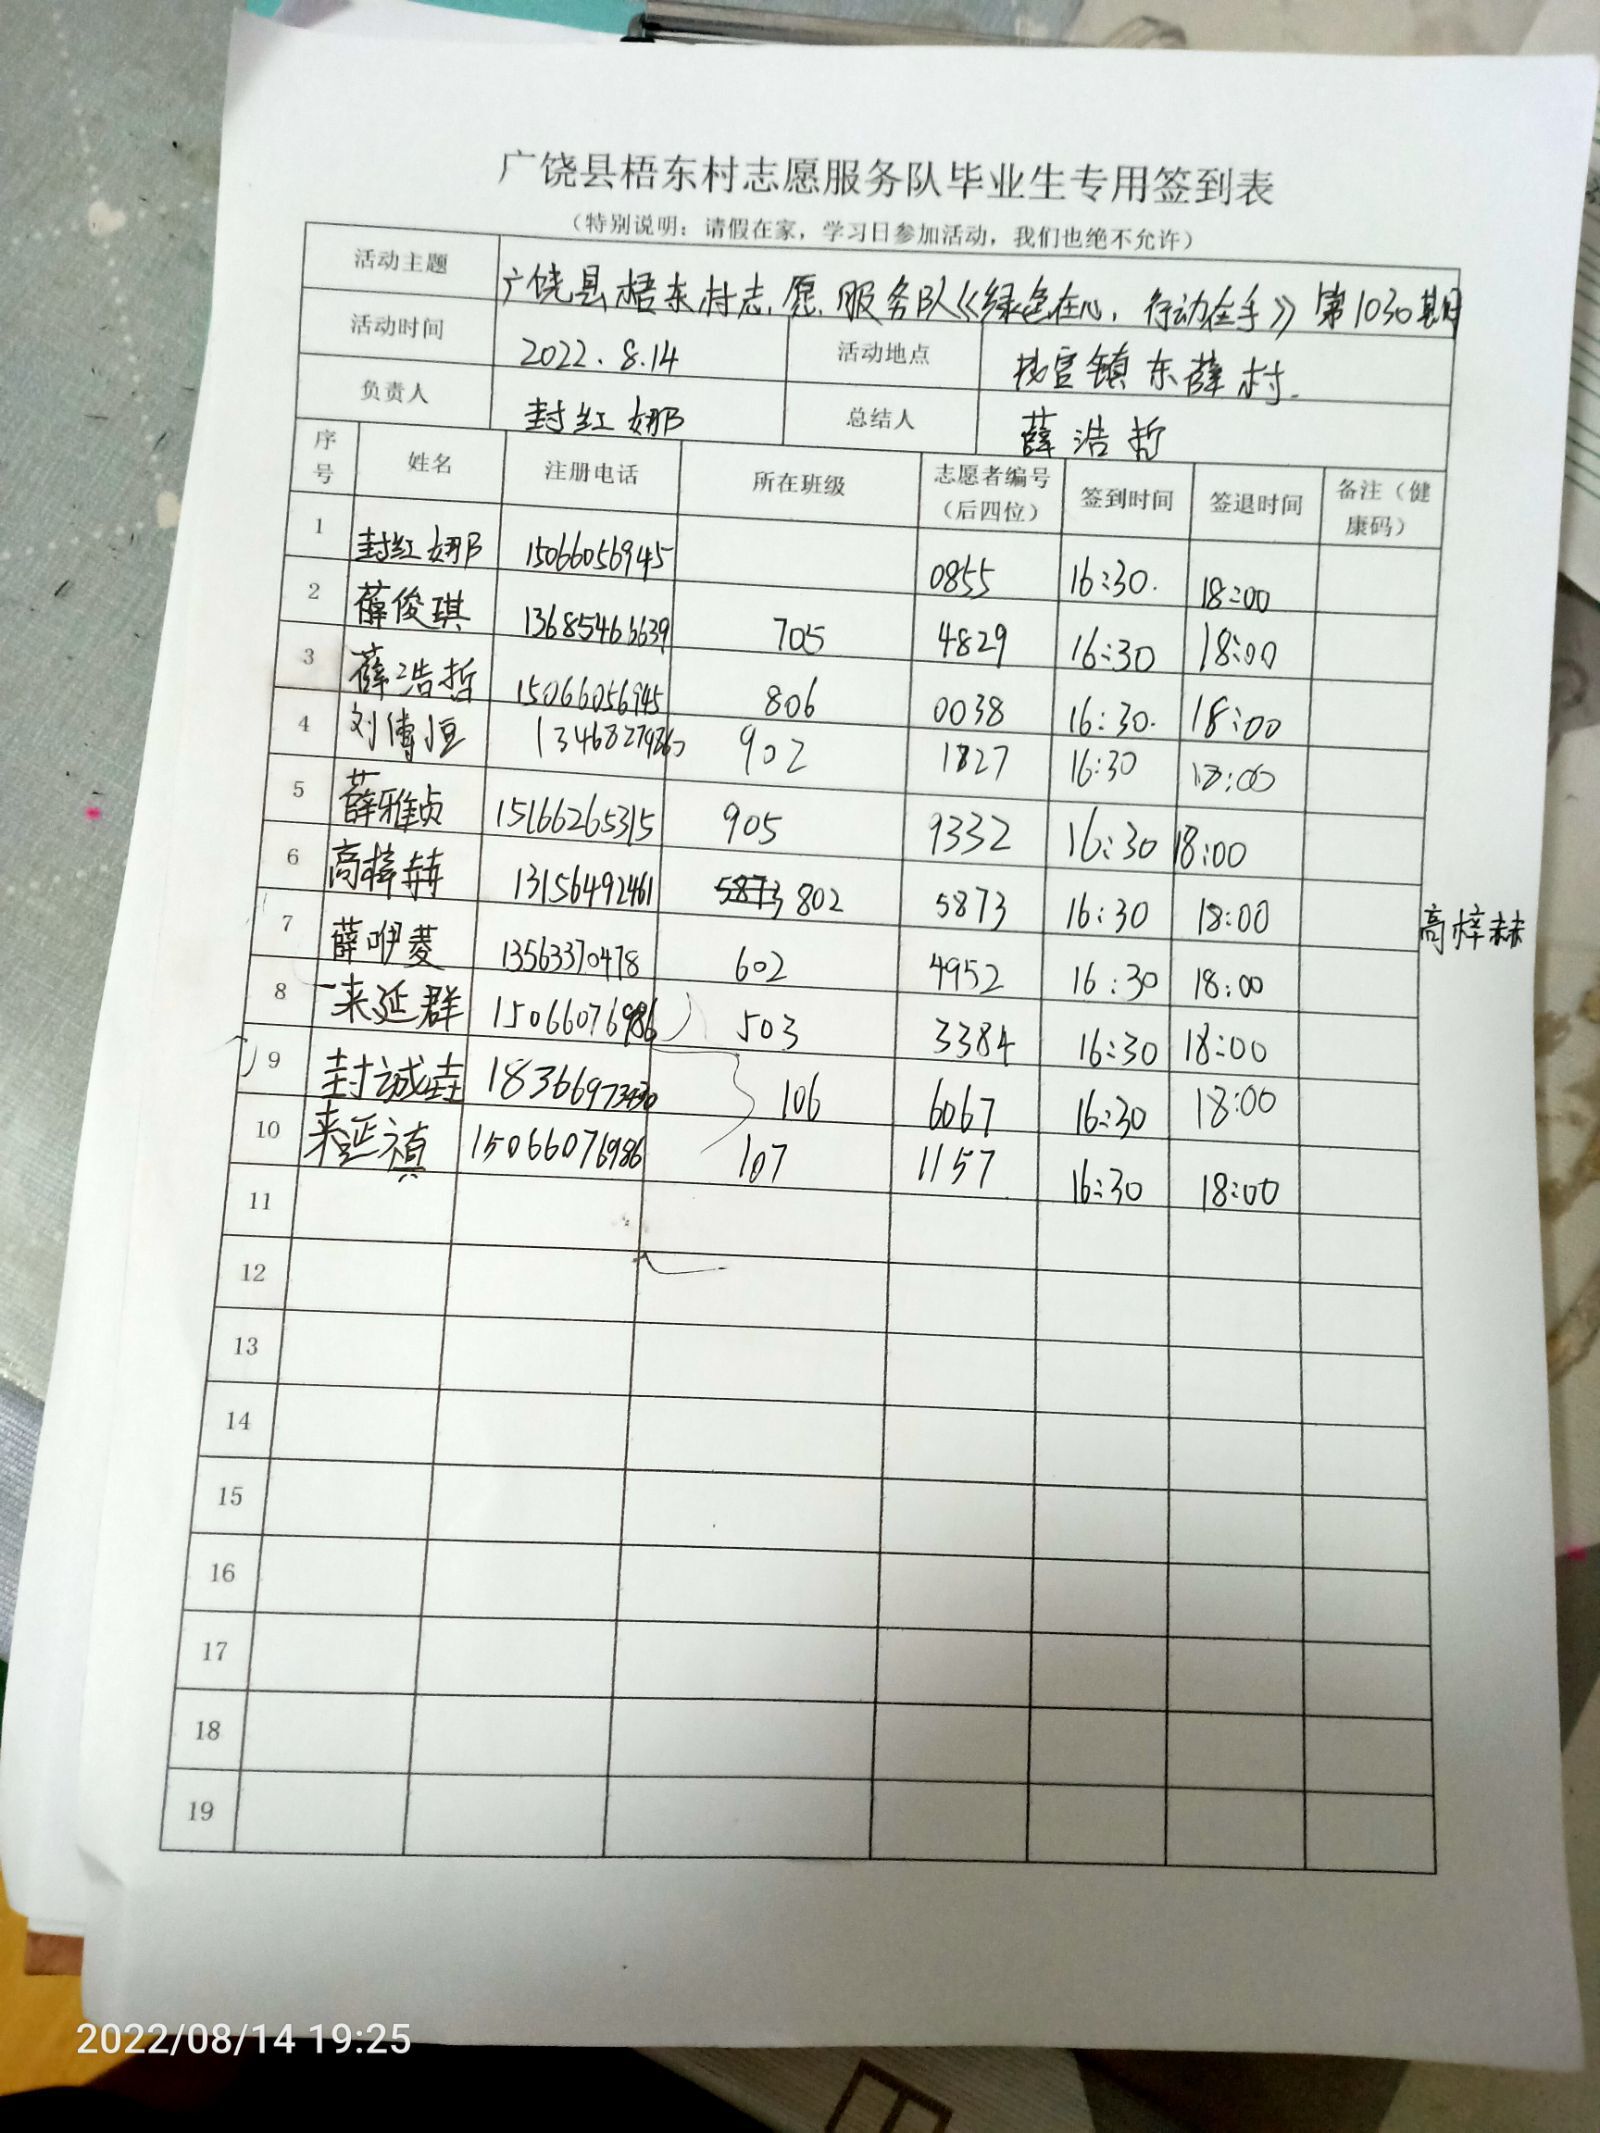 广饶县梧东村志愿服务队毕业生专用签到表
（特别说明：请假在家，学习日参加活动，我们也绝不允许）
活动主题 广饶县梧东村志愿服务队《绿色在心，行动在手》第1030期
活动时间 2022.8.14 活动地点 官镇东薛村
负责人 封红娜 总结人 薛浩哲
序号 姓名 注册电话 所在班级 志愿者编号（后四位） 签到时间 签退时间 备注（健康码）
1 封红娜 15066056945 0855 16:30 18:00
2 薛俊琪 13685466639 705 4829 16:30 18:00
3 薛浩哲 15066056945 806 0038 16:30 18:00
4 刘博恒 902 1827 16:30 18:00
5 薛雅贞 15166265315 905 9332 16:30 18:00
6 高梓赫 13156492461 802 5873 16:30 18:00 高梓赫
7 薛咿菱 13563370478 602 4952 16:30 18:00
8 来延群 15066076986 503 3384 16:30 18:00
9 封诚 106 6067 16:30 18:00
10 来延禛 15066076986 107 1157 16:30 18:00
11
12
13
14
15
16
17
18
19
2022/08/14 19:25